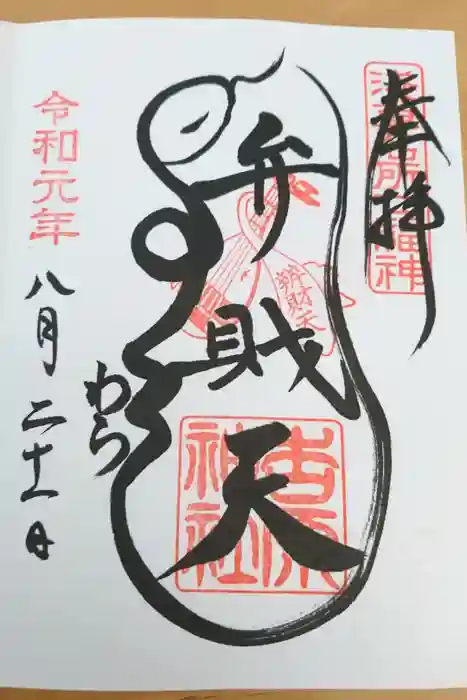 奉拝
浅草名所七福神
弁財天
辨財天
吉原
神社
わら
令和元年
八月二十一日